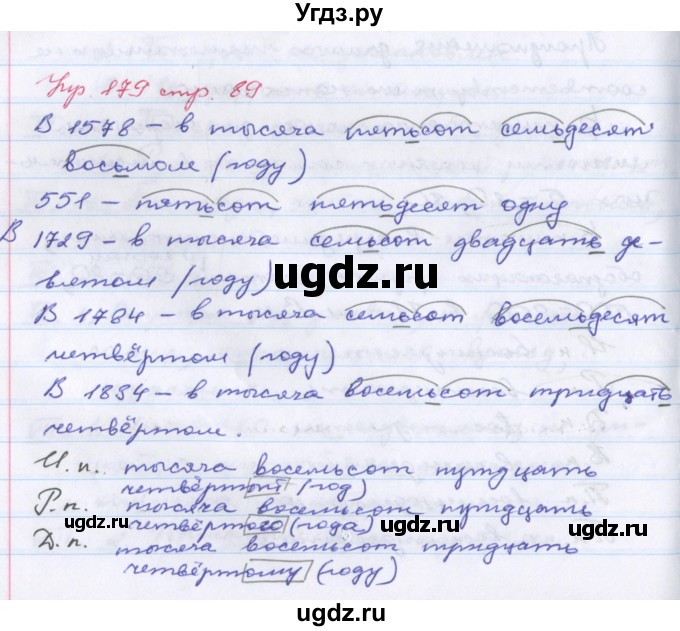 Угдз.ру
Упр. 179 стр. 89
В 1578 – в тысяча пятьсот семьдесят
восьмом (году)
551 – пятьсот пятьдесят одну
В 1729 – в тысяча семьсот двадцать де-
вятом (году)
В 1784 – в тысяча семьсот восемьдесят
четвёртом (году)
В 1834 – в тысяча восемьсот тридцать
четвёртом.
И.п. тысяча восемьсот тридцать
четвёртый (год)
Р.п. тысяча восемьсот тридцать
четвёртого (года)
Д.п. тысяча восемьсот тридцать
четвёртому (году)
ugdz.ru
ugdz.ru
ugdz.ru
ugdz.ru
ugdz.ru
ugdz.ru
ugdz.ru
ugdz.ru